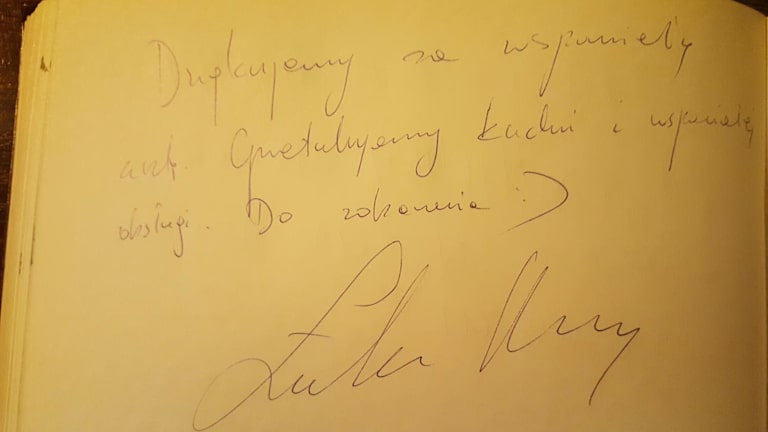 Dziękujemy za wspaniały
Gratulujemy kuchni i wspaniałej
obsługi. Do zobaczenia :)